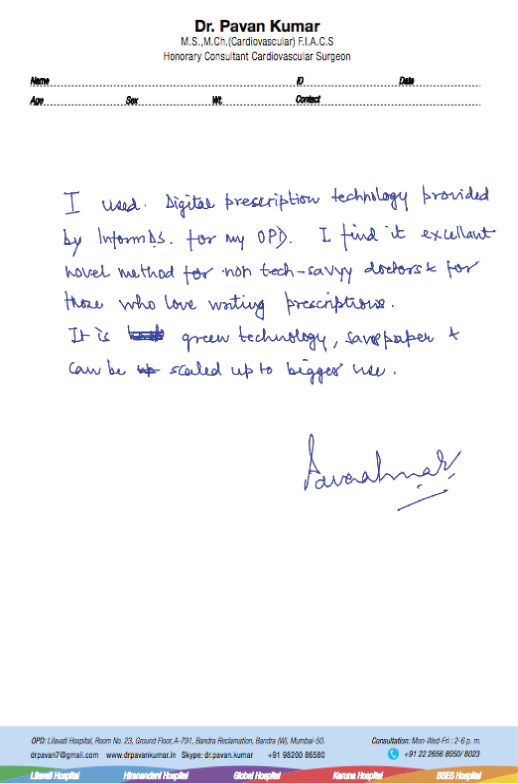 Dr. Pavan Kumar
M.S.,M.Ch.(Cardiovascular) F.I.A.C.S
Honorary Consultant Cardiovascular Surgeon
Name ID Date
Age Sex Wt. Contact
I used. Digital prescription technology provided
by InformDS. for my OPD. I find it excellant
novel method for non tech-savyy doctors & for
those who love writing prescriptions.
It is green technology, saves paper &
can be scaled up to bigger use.
OPD: Lilavati Hospital, Room No. 23, Ground Floor, A-791, Bandra Reclamation, Bandra (W), Mumbai-50. Consultation: Mon-Wed-Fri : 2-6 p. m.
drpavan7@gmail.com www.drpavankumar.in Skype: dr.pavan.kumar +91 98200 86580 +91 22 2656 8050/ 8023
Lilavati Hospital Hiranandani Hospital Global Hospital Karuna Hospital BSES Hospital